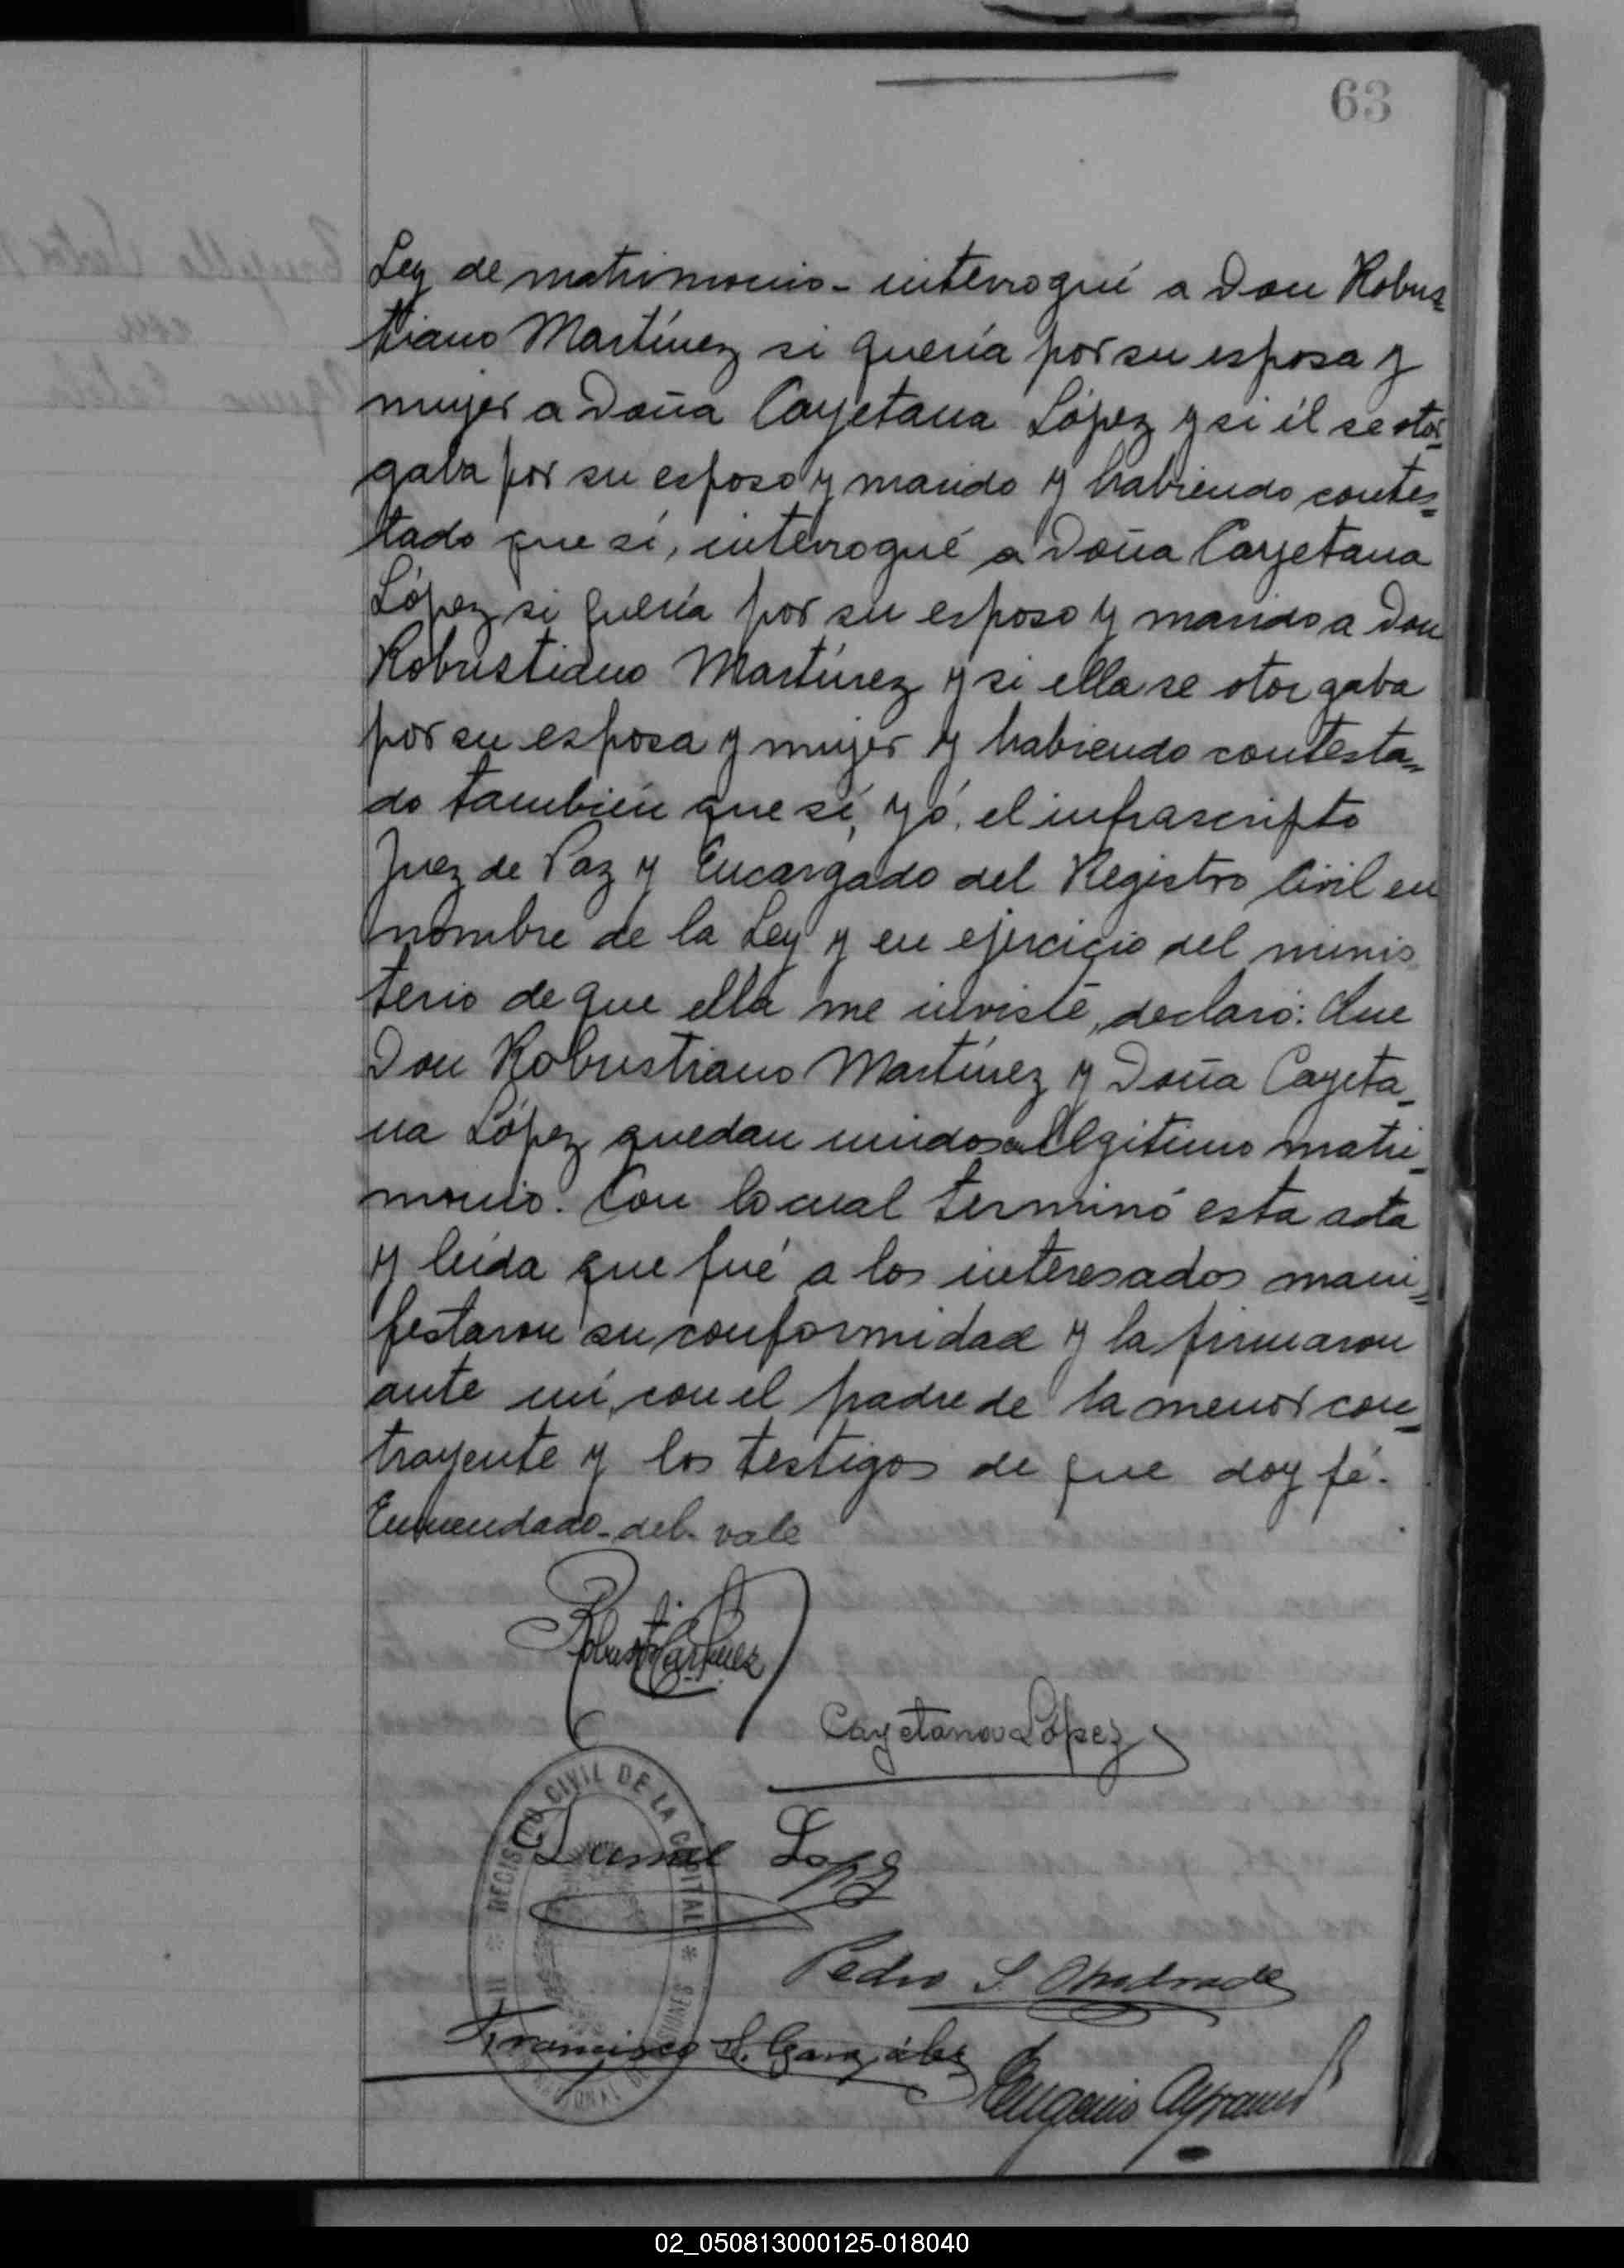 63
Ley de matrimonio - interrogué a Don Robus
tiano Martínez si quería por su esposa y
mujer a Doña Cayetana López y si él se otor-
gaba por su esposo y marido y habiendo contes=
tado que sí, interrogué a Doña Cayetana
López si quería por su esposo y marido a Don
Robustiano Martínez y si ella se otorgaba
por su esposa y mujer y habiendo contesta=
do también que sí, yó, el infrascripto
Juez de Paz y Encargado del Registro Civil en
nombre de la Ley y en ejercicio del minis
terio de que ella me inviste, declaró: Que
Don Robustiano Martínez y Doña Cayeta-
na López quedan unidos en legitimo matri-
monio. Con lo cual terminó esta acta
y leída que fué a los interesados mani=
festaron su conformidad y la firmaron
ante mí, con el padre de la menor con=
trayente y los testigos de que doy fé.
Enmendado - del - vale
Robust Martinez
Cayetana López
REGISTRO CIVIL DE LA CAPITAL
Lopez
Pedro S. Andrade
Francisco S. González
Eugenio
02_050813000125-018040